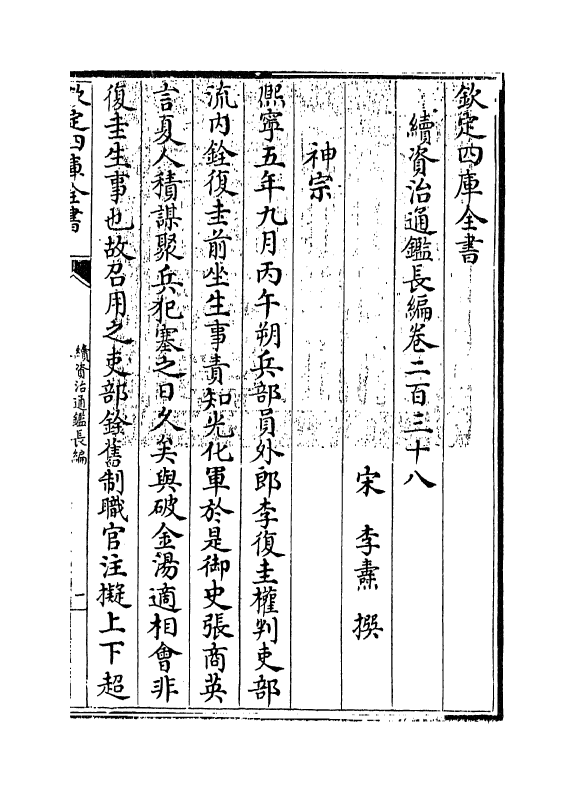 欽定四庫全書
續資治通鑑長編卷二百三十八
宋 李燾 撰
神宗
熈寧五年九月丙午朔兵部員外郎李復圭權判吏部
流内銓復圭前坐生事責知光化軍於是御史張商英
言夏人積謀聚兵犯塞之日久矣與破金湯適相會非
復圭生事也故召用之吏部銓舊制職官注擬上下超
欽定四庫全書
續資治通鑑長編
一